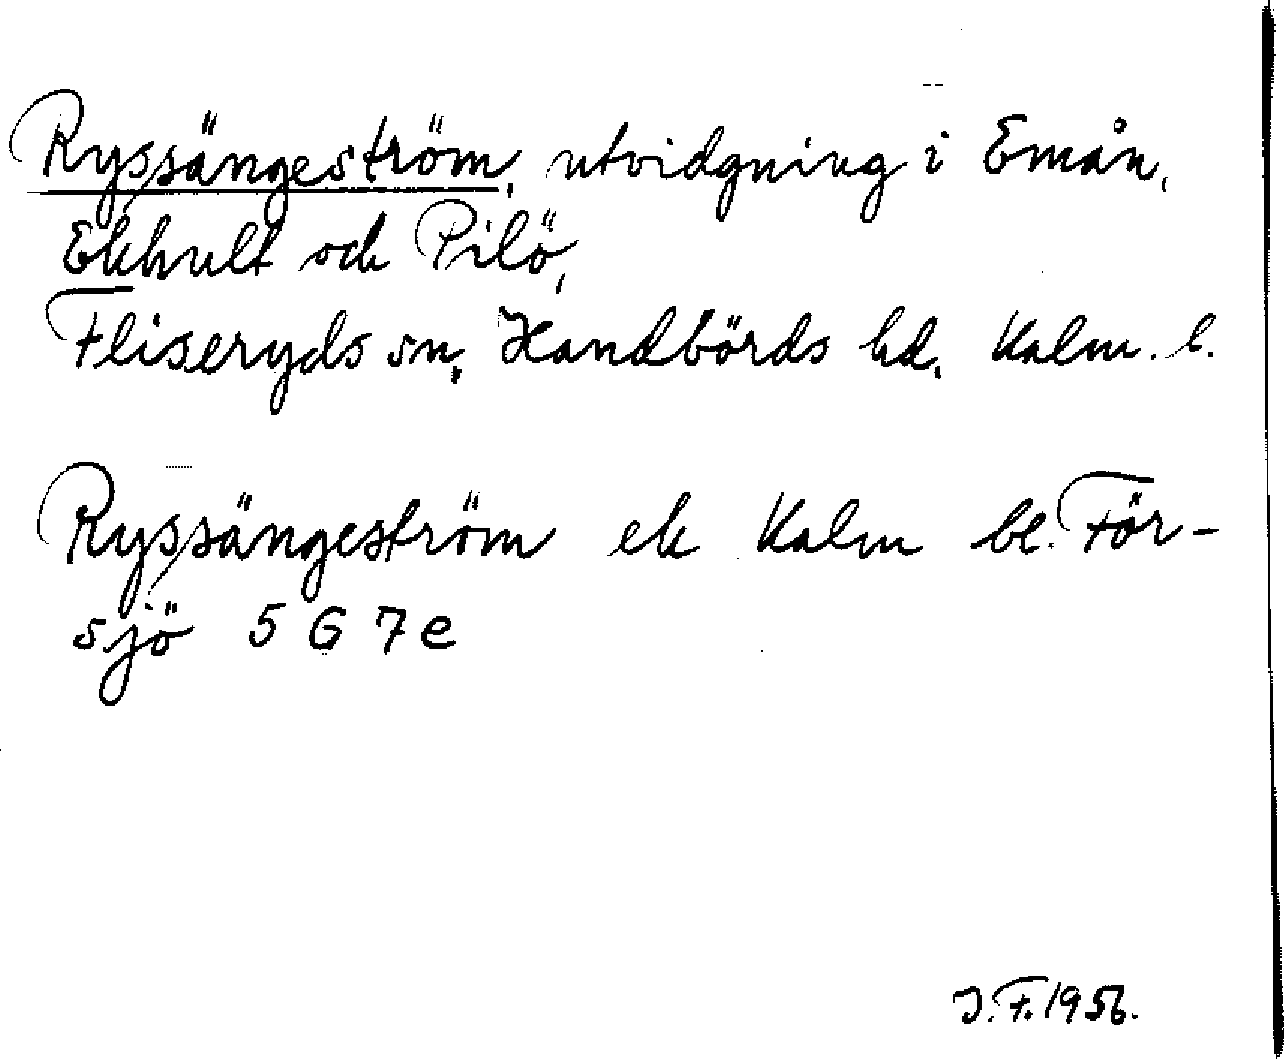 Ryssängeström, utvidgning i Emån,
Ekhult och Pilö,
Fliseryds sn, Handbörds hd, Kalm. l.
Ryssängeström ek Kalm bl. För-
sjö 5 G 7 e
J. F. 1956.